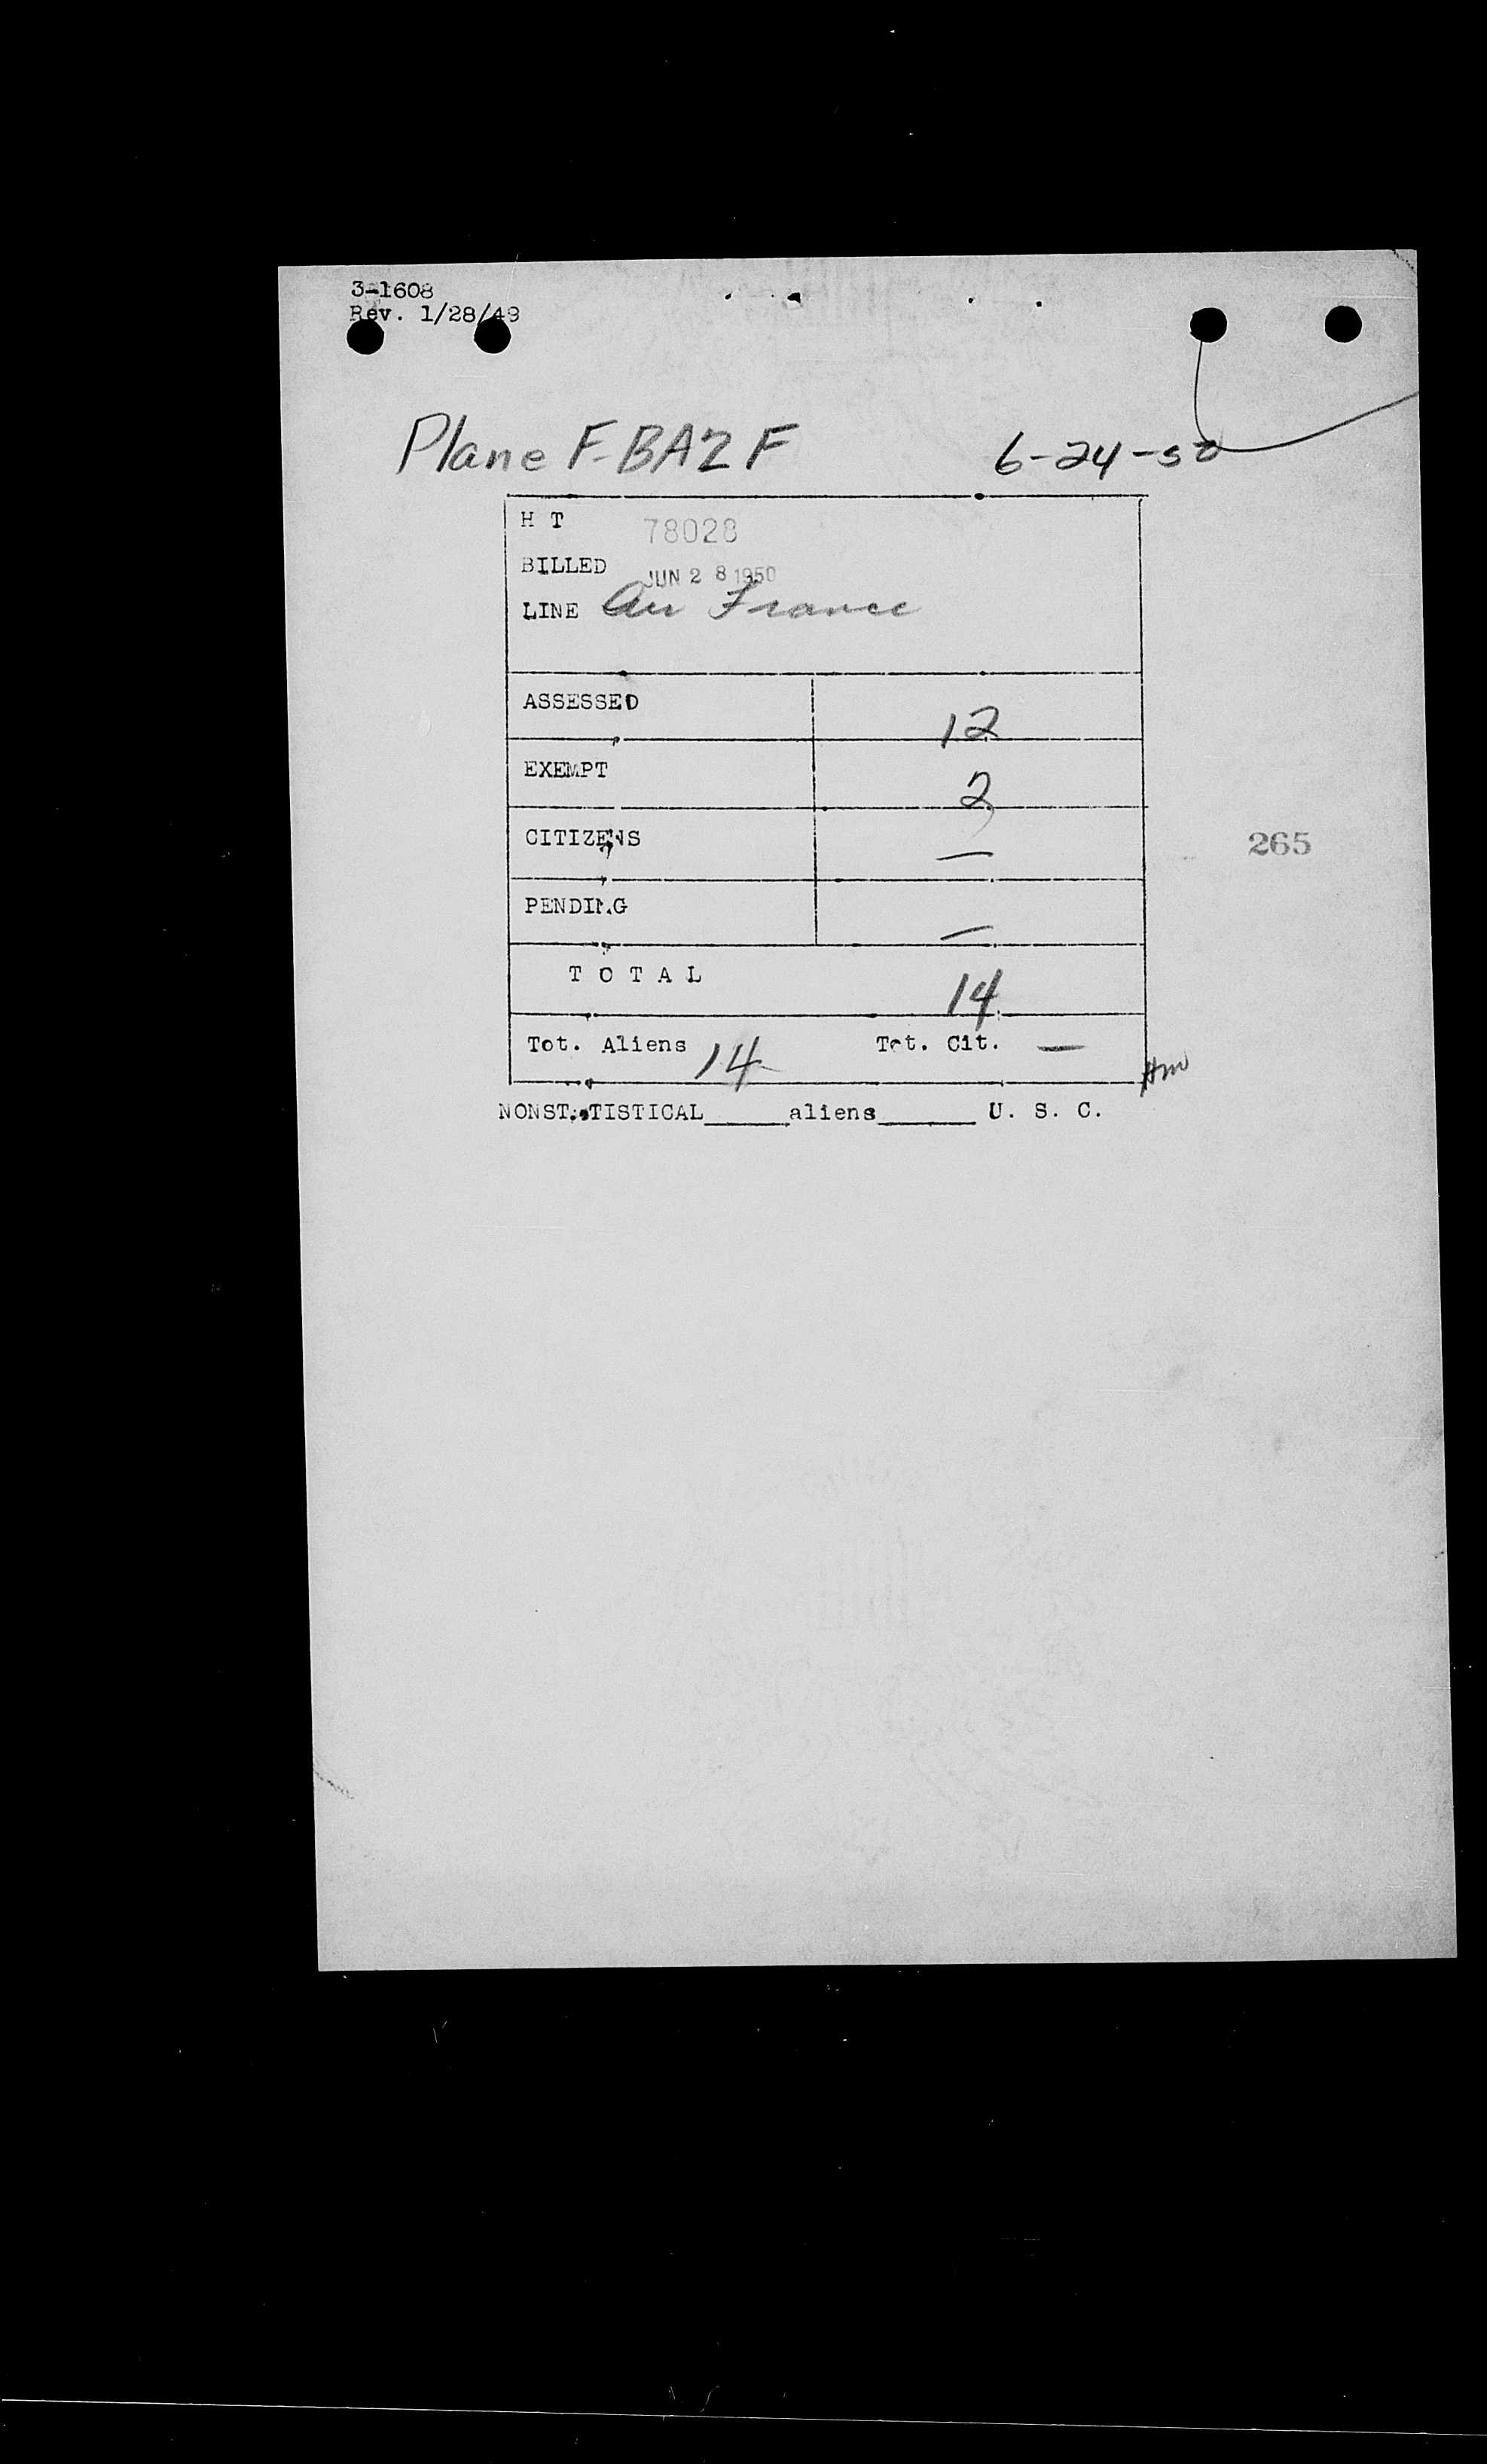 3-1608
Rev. 1/28/49
Plane F-BAZF 6-24-50
H T 78028
BILLED JUN 28 1950
LINE Air France
ASSESSED 12
EXEMPT 2
CITIZENS —
265
PENDING —
T O T A L 14
Tot. Aliens 14 Tot. Cit. —
NONSTATISTICAL_____aliens______ U. S. C.